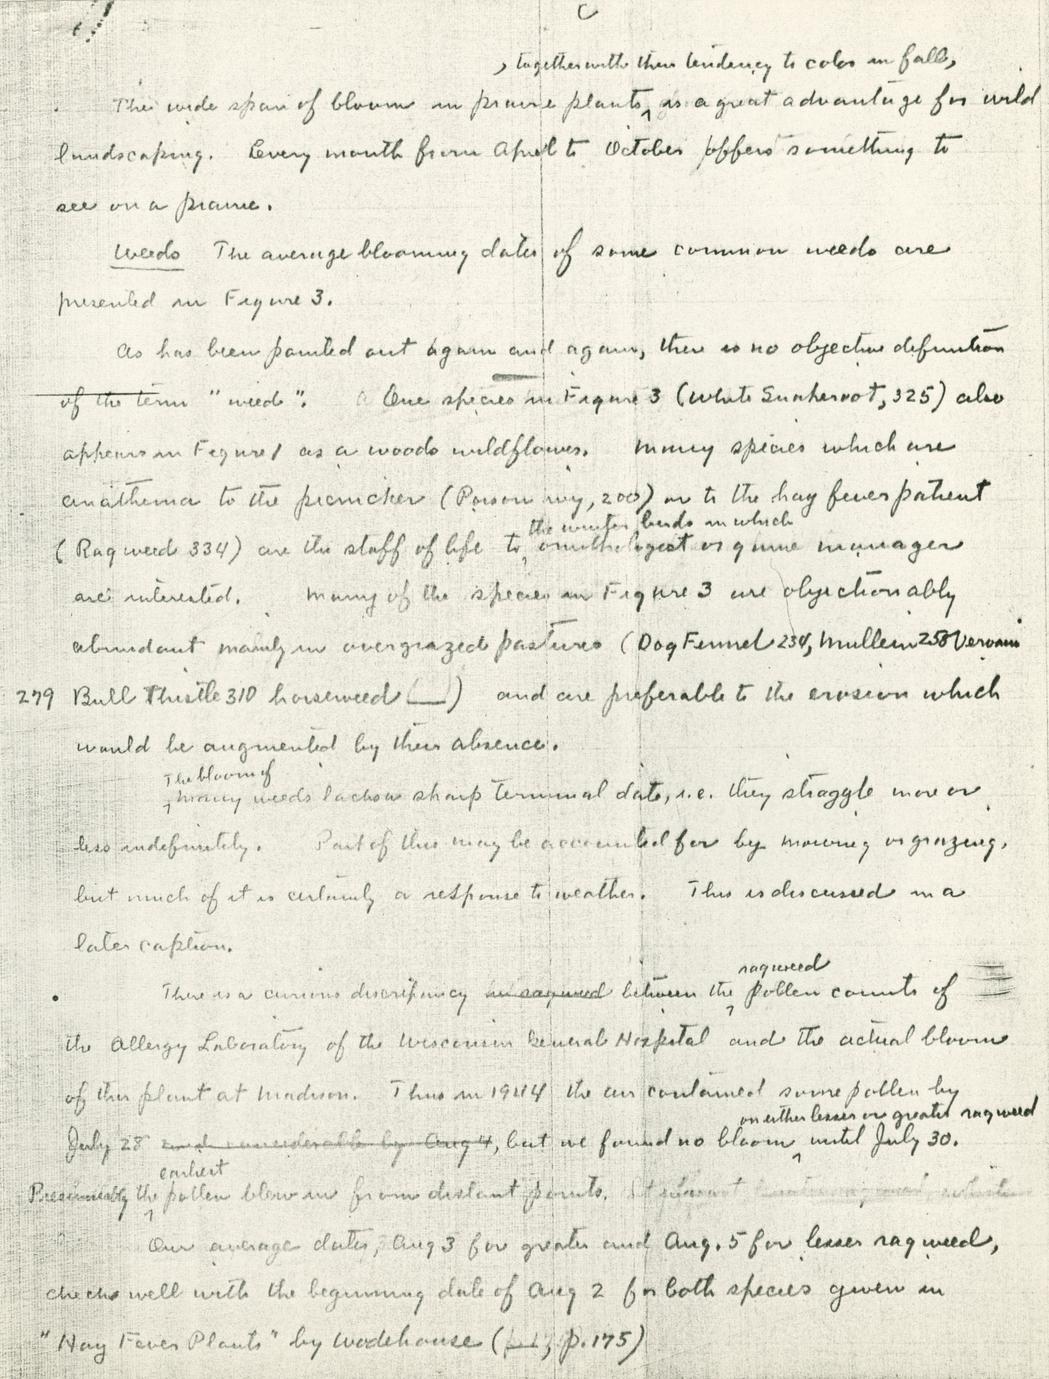 C
, together with their tendency to color in fall,
The wide span of bloom in prairie plants is a great advantage for wild
landscaping. Every month from April to October offers something to
see on a prairie.
Weeds The average blooming dates of some common weeds are
presented in Figure 3.
As has been pointed out again and again, there is no objective definition
of the term "weed". One species in Figure 3 (White Snakeroot, 325) also
appears in Figure 1 as a woods wildflower. Many species which are
anathema to the picnicker (Poison ivy, 200) or to the hay fever patient
the winter birds in which
(Ragweed 334) are the staff of life to ornithologist or game manager
are interested. Many of the species in Figure 3 are objectionably
abundant mainly in overgrazed pastures (Dog Fennel 234, Mullein 258 Vervain
279 Bull Thistle 310 horseweed ( ) and are preferable to the erosion which
would be augmented by their absence.
The bloom of
many weeds lacks a sharp terminal date, i.e. they straggle more or
less indefinitely. Part of this may be accounted for by mowing or grazing,
but much of it is certainly a response to weather. This is discussed in a
later caption.
ragweed
There is a curious discrepancy in ragweed between the pollen counts of
the Allergy Laboratory of the Wisconsin General Hospital and the actual bloom
of this plant at Madison. Thus in 1944 the air contained some pollen by
on either lesser or greater ragweed
July 28 and considerable by Aug 4, but we found no bloom until July 30.
earliest
Presumably the pollen blew in from distant points.
Our average dates, Aug 3 for greater and Aug. 5 for lesser ragweed,
checks well with the beginning date of Aug 2 for both species given in
"Hay Fever Plants" by Wodehouse ( p. 175)